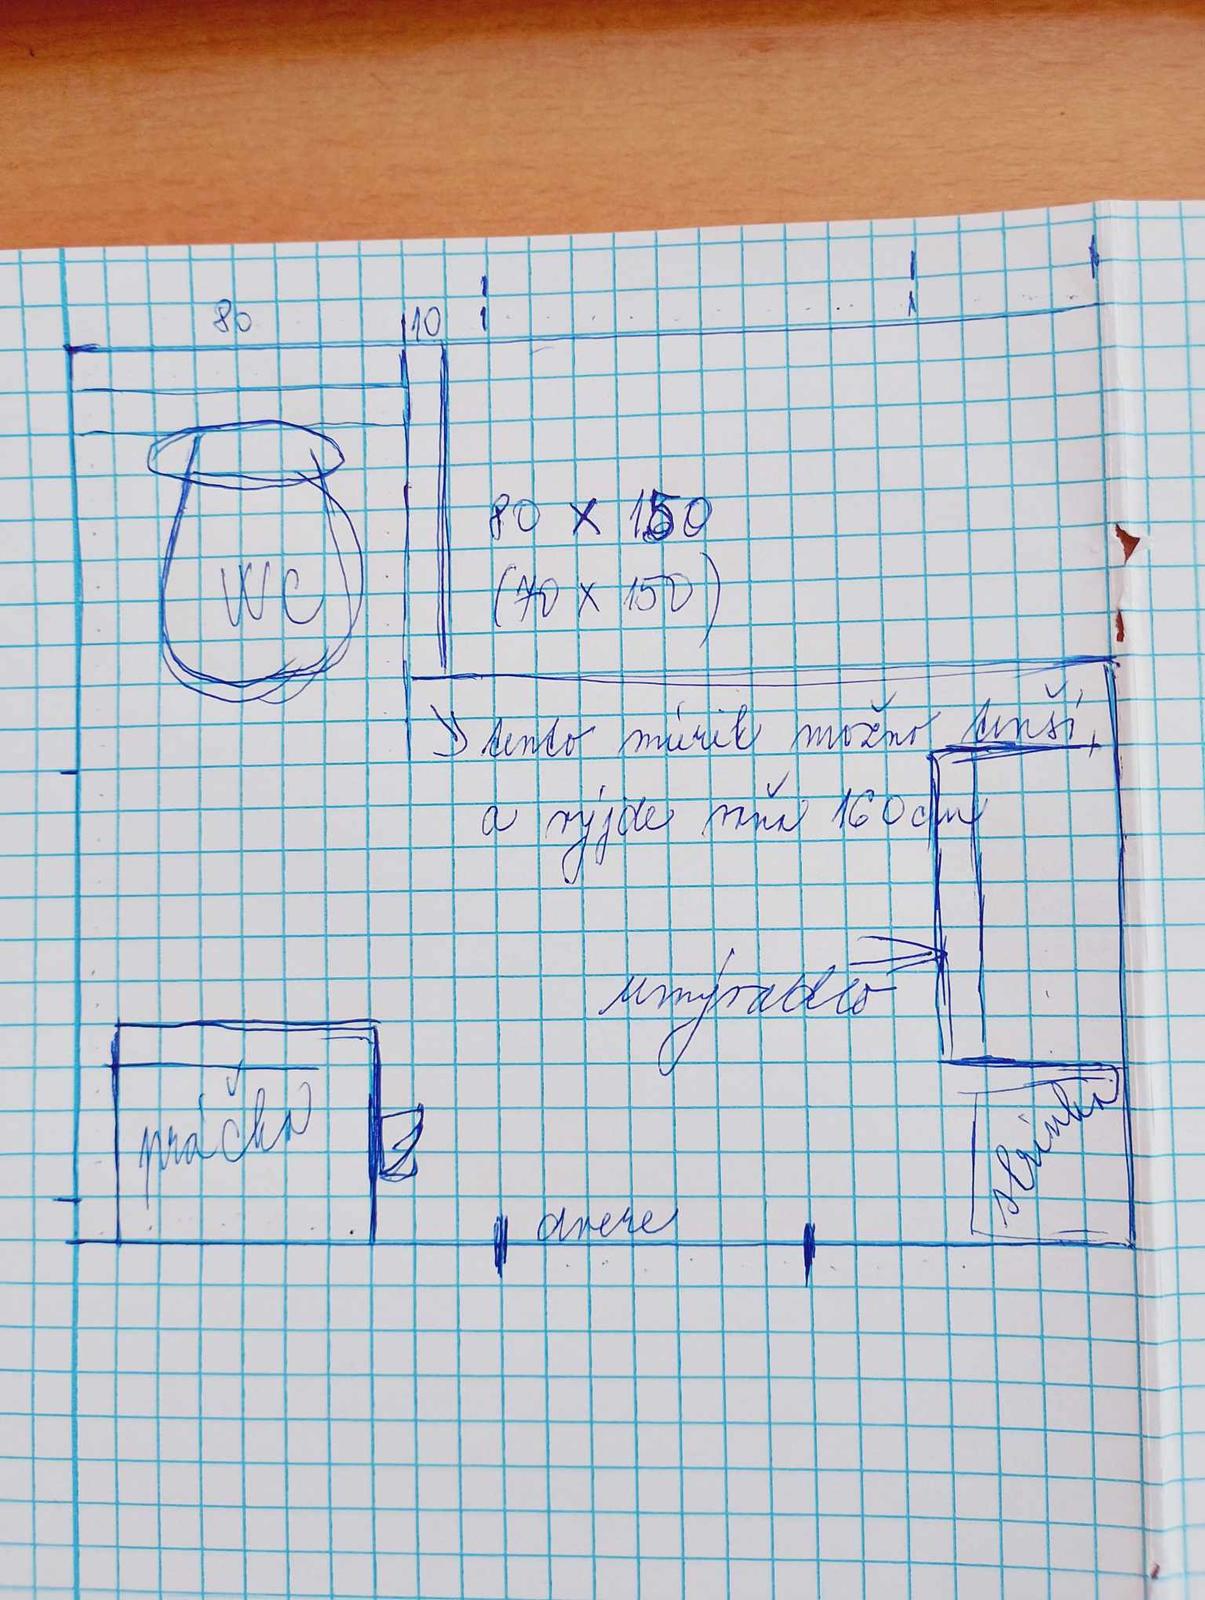 80
10
WC
80 x 150
(70 x 150)
tento múrik možno tenší,
a výjde vaňa 160cm
umývadlo
práčka
skrinka
dvere